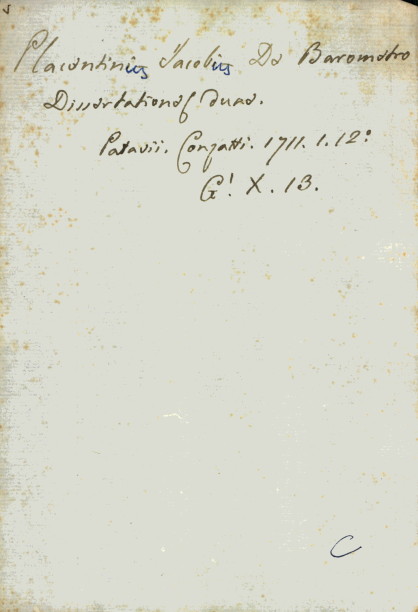 Placentinius Jacobius De Barometro
Dissertationes duae.
Patavii. Conzatti. 1711. 1. 12°
G! X. 13.
C